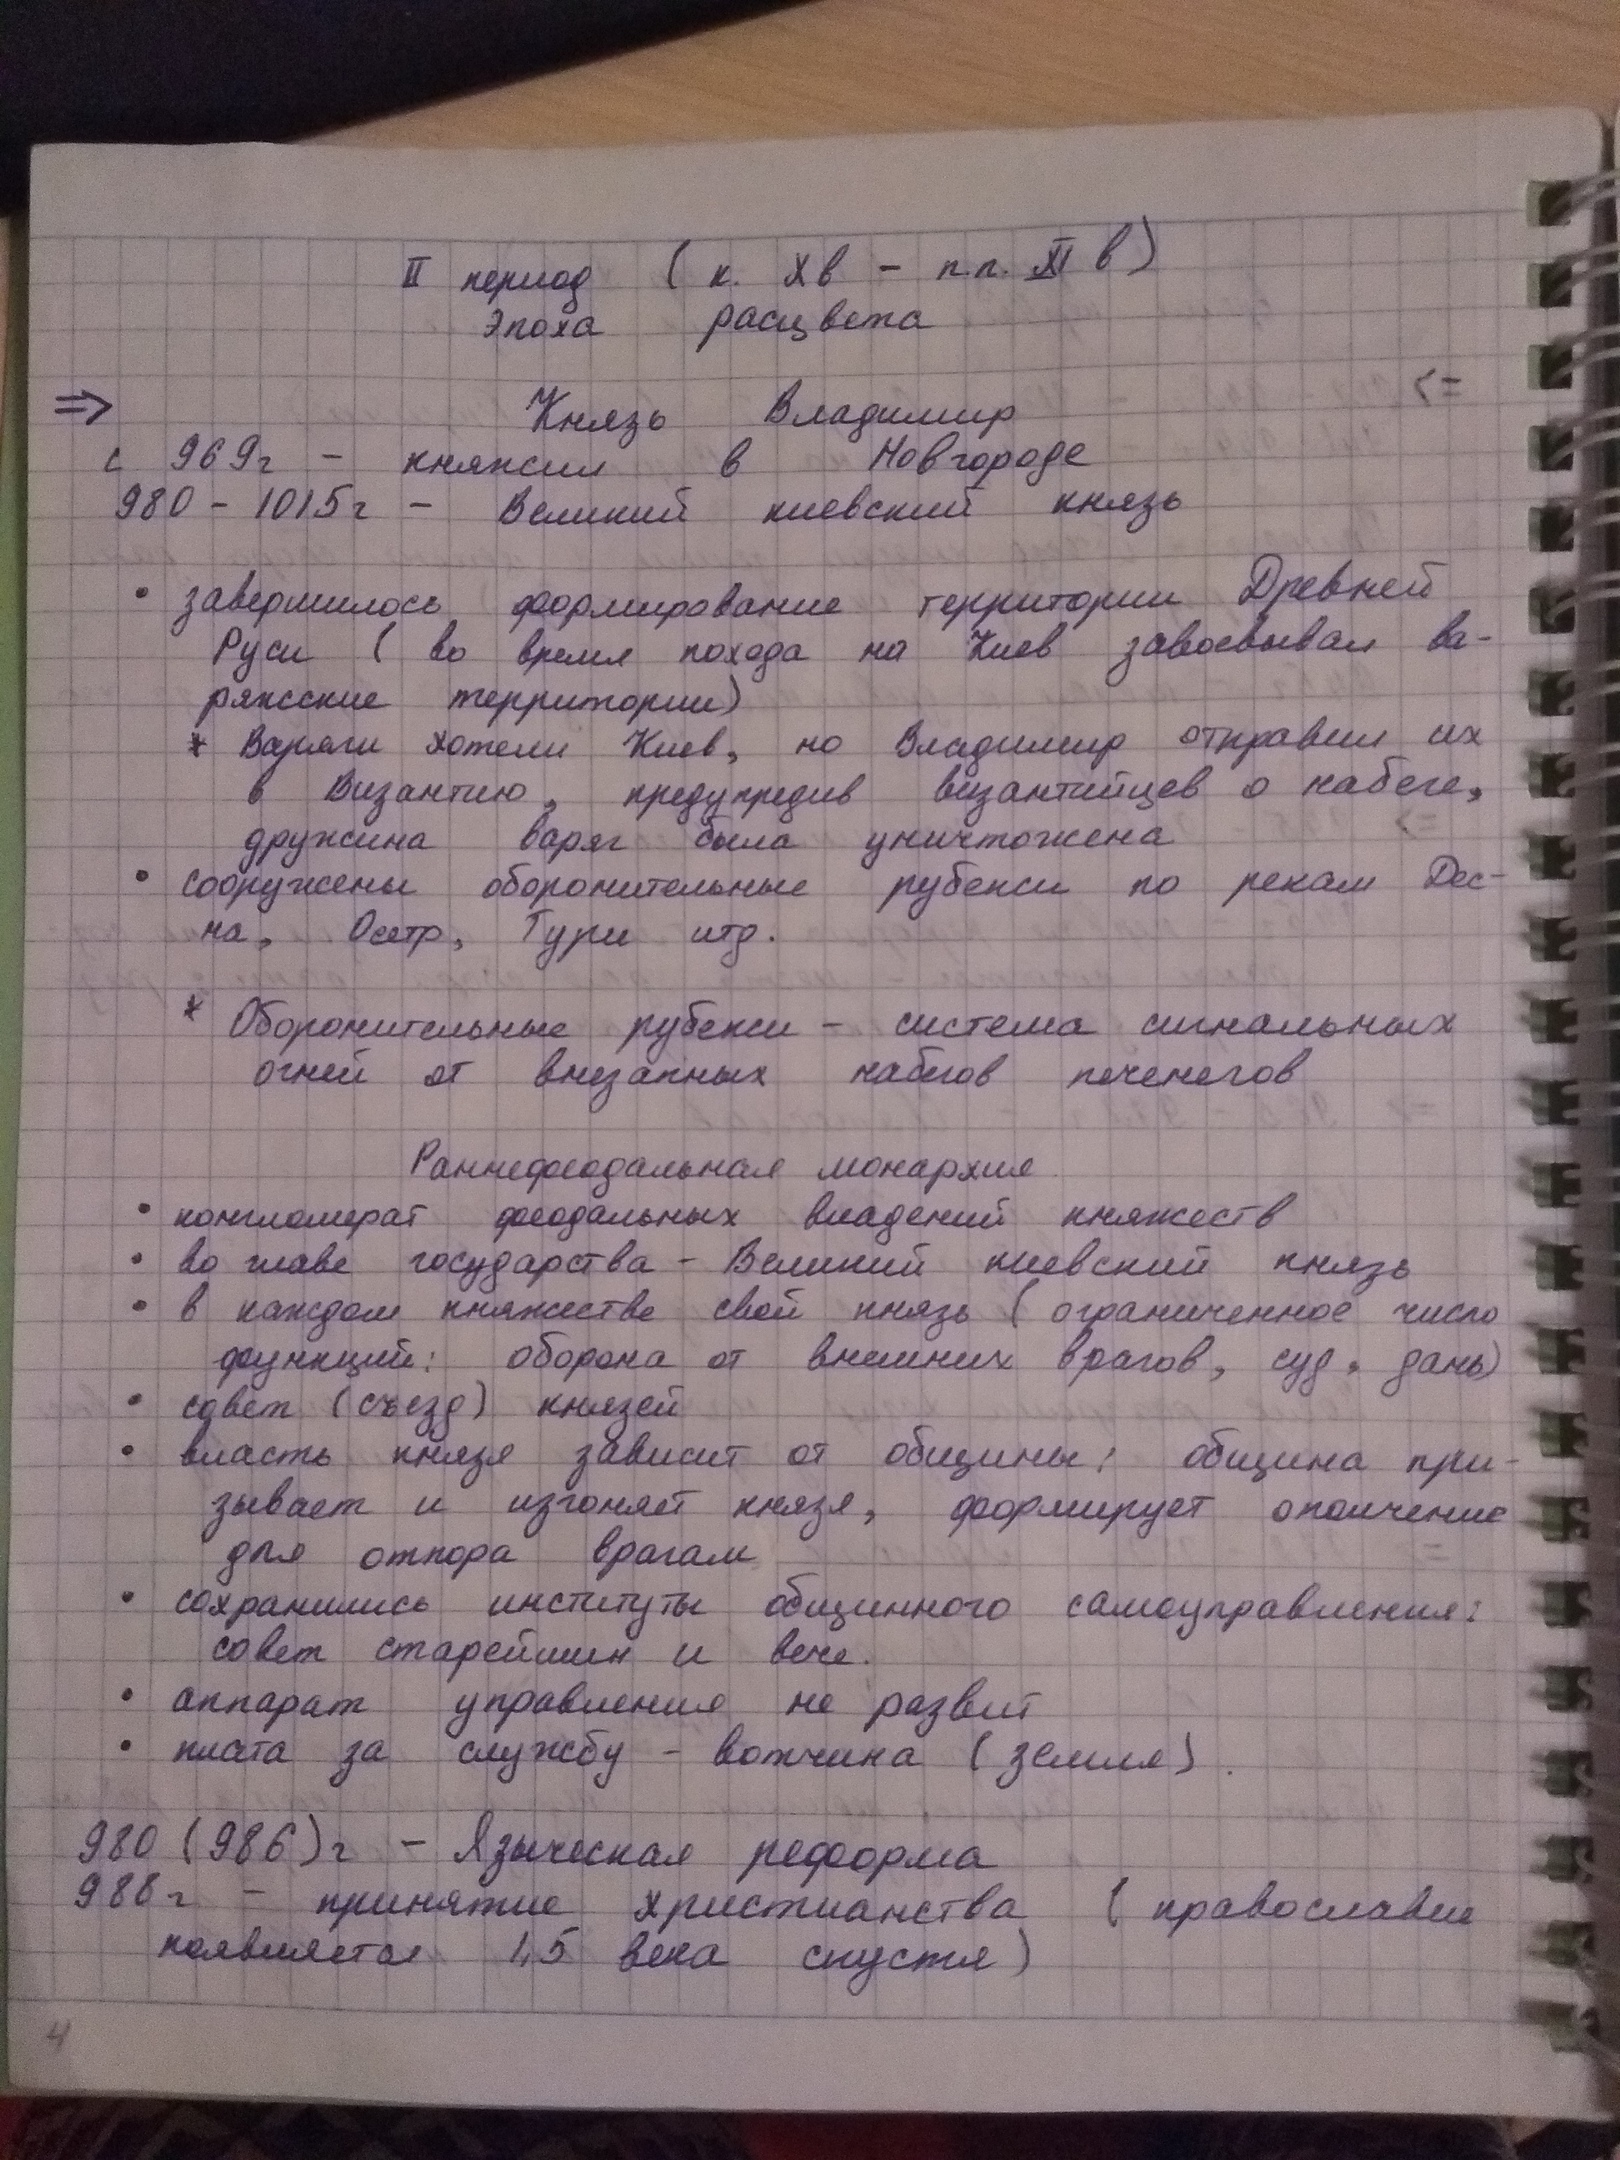 II период (к. Xв - п.п. XI в)
Эпоха расцвета
⇒ Князь Владимир <=
с 969г - княжил в Новгороде
980 - 1015г - Великий киевский князь
• завершилось формирование территории Древней
Руси (во время похода на Киев завоевывал ва-
ряжские территории)
* Варяги хотели Киев, но Владимир отправил их
в Византию, предупредив византийцев о набеге,
дружина варяг была уничтожена
• сооружены оборонительные рубежи по рекам Дес-
на, Осетр, Тури итд.
* Оборонительные рубежи - система сигнальных
огней от внезапных набегов печенегов
Раннефеодальная монархия
• конгломерат феодальных владений княжеств
• во главе государства - Великий киевский князь
• в каждом княжестве свой князь (ограниченное число
функций: оборона от внешних врагов, суд, дань)
• совет (съезд) князей
• власть князя зависит от общины: община при-
зывает и изгоняет князя, формирует ополчение
для отпора врагам
• сохранились институты общинного самоуправления:
совет старейшин и вече.
• аппарат управления не развит
• плата за службу - вотчина (земля).
980 (986)г - Языческая реформа
988г - принятие христианства (православие
появляется 1,5 века спустя)
4